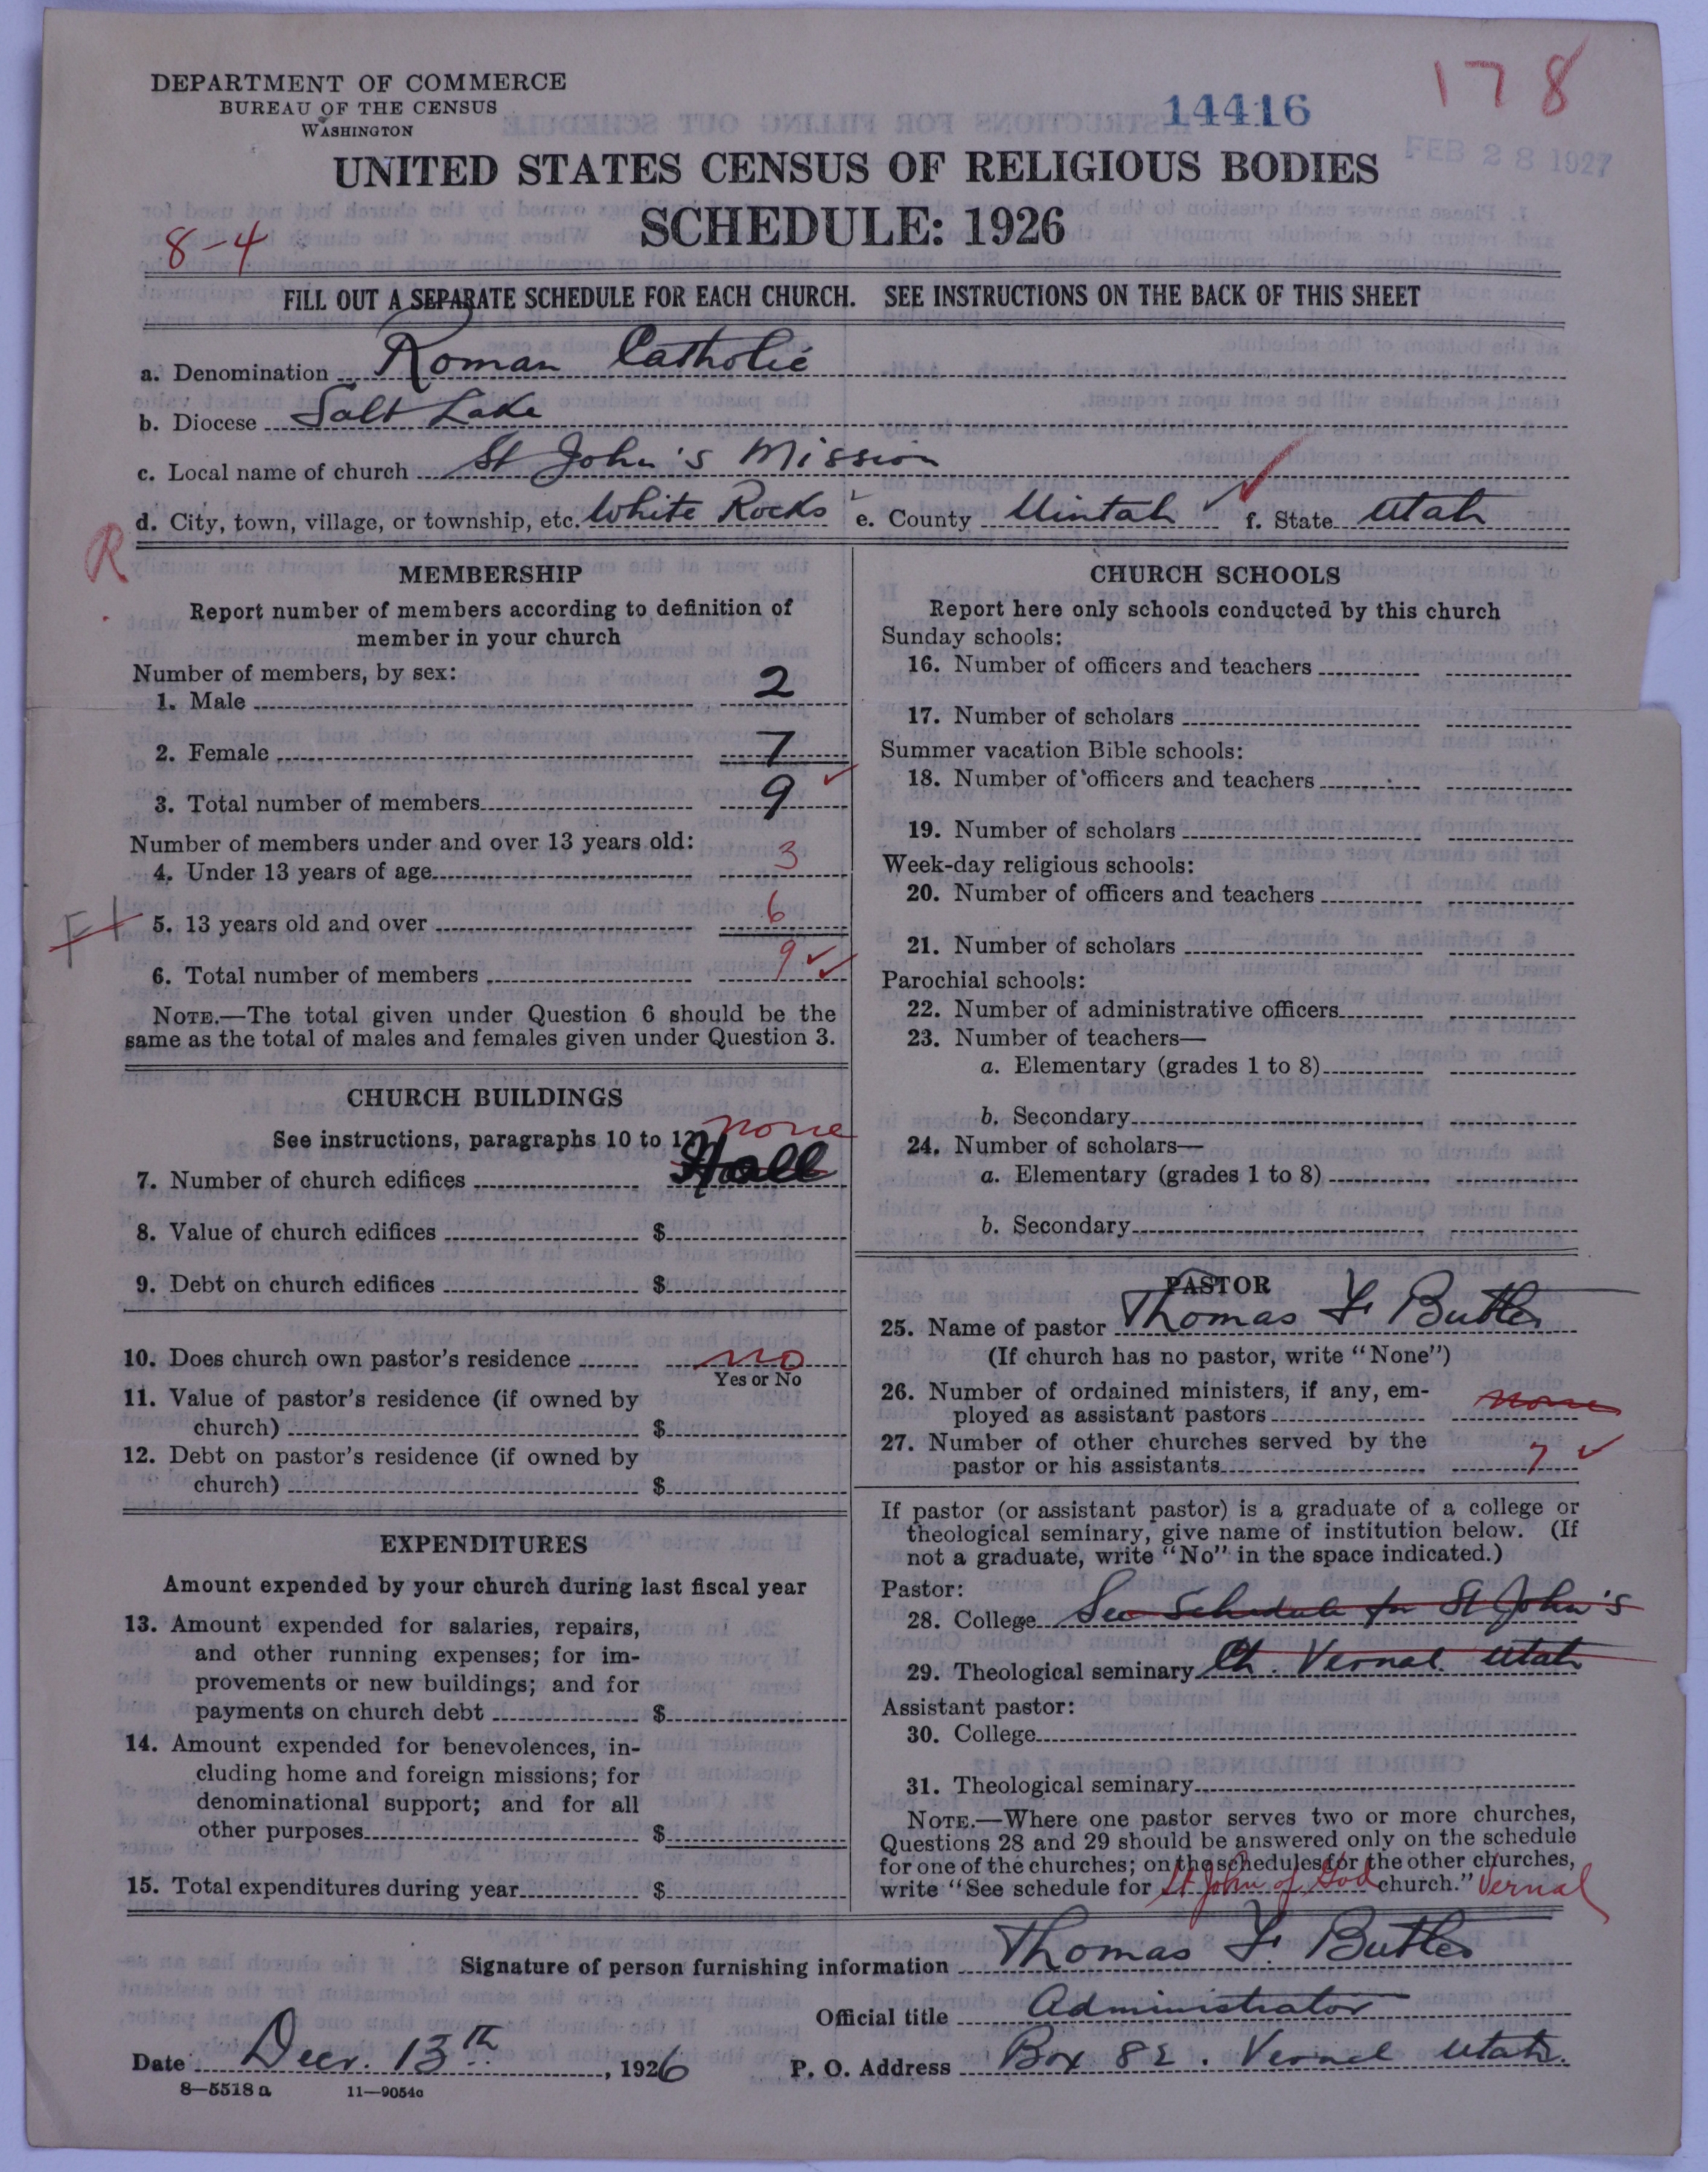 DEPARTMENT OF COMMERCE
BUREAU OF THE CENSUS
WASHINGTON
14416
178
FEB 28 1927
UNITED STATES CENSUS OF RELIGIOUS BODIES
SCHEDULE: 1926
8-4
FILL OUT A SEPARATE SCHEDULE FOR EACH CHURCH. SEE INSTRUCTIONS ON THE BACK OF THIS SHEET
a. Denomination Roman Catholic
b. Diocese Salt Lake
c. Local name of church St John's Mission
d. City, town, village, or township, etc. White Rocks e. County Uintah ✓ f. State Utah
R
MEMBERSHIP
Report number of members according to definition of
member in your church
Number of members, by sex:
1. Male 2
2. Female 7
3. Total number of members 9 ✓
Number of members under and over 13 years old:
4. Under 13 years of age 3
5. 13 years old and over 6
6. Total number of members 9 ✓ ✓
NOTE.—The total given under Question 6 should be the
same as the total of males and females given under Question 3.
CHURCH BUILDINGS
See instructions, paragraphs 10 to 12
none
7. Number of church edifices Hall
8. Value of church edifices $
9. Debt on church edifices $
10. Does church own pastor's residence no
Yes or No
11. Value of pastor's residence (if owned by
church) $
12. Debt on pastor's residence (if owned by
church) $
EXPENDITURES
Amount expended by your church during last fiscal year
13. Amount expended for salaries, repairs,
and other running expenses; for im-
provements or new buildings; and for
payments on church debt $
14. Amount expended for benevolences, in-
cluding home and foreign missions; for
denominational support; and for all
other purposes $
15. Total expenditures during year $
CHURCH SCHOOLS
Report here only schools conducted by this church
Sunday schools:
16. Number of officers and teachers
17. Number of scholars
Summer vacation Bible schools:
18. Number of officers and teachers
19. Number of scholars
Week-day religious schools:
20. Number of officers and teachers
21. Number of scholars
Parochial schools:
22. Number of administrative officers
23. Number of teachers—
a. Elementary (grades 1 to 8)
b. Secondary
24. Number of scholars—
a. Elementary (grades 1 to 8)
b. Secondary
PASTOR
25. Name of pastor Thomas F. Butler
(If church has no pastor, write "None")
26. Number of ordained ministers, if any, em-
ployed as assistant pastors none
27. Number of other churches served by the
pastor or his assistants 7 ✓
If pastor (or assistant pastor) is a graduate of a college or
theological seminary, give name of institution below. (If
not a graduate, write "No" in the space indicated.)
Pastor:
28. College See Schedule for St John's
29. Theological seminary Ch. Vernal. Utah
Assistant pastor:
30. College
31. Theological seminary
NOTE.—Where one pastor serves two or more churches,
Questions 28 and 29 should be answered only on the schedule
for one of the churches; on the schedules for the other churches,
write "See schedule for St John of God church." Vernal
Signature of person furnishing information Thomas F. Butler
Official title Administrator
Date Decr. 13th, 1926 P. O. Address Box 82. Vernal Utah.
8—5518 a 11—9054a